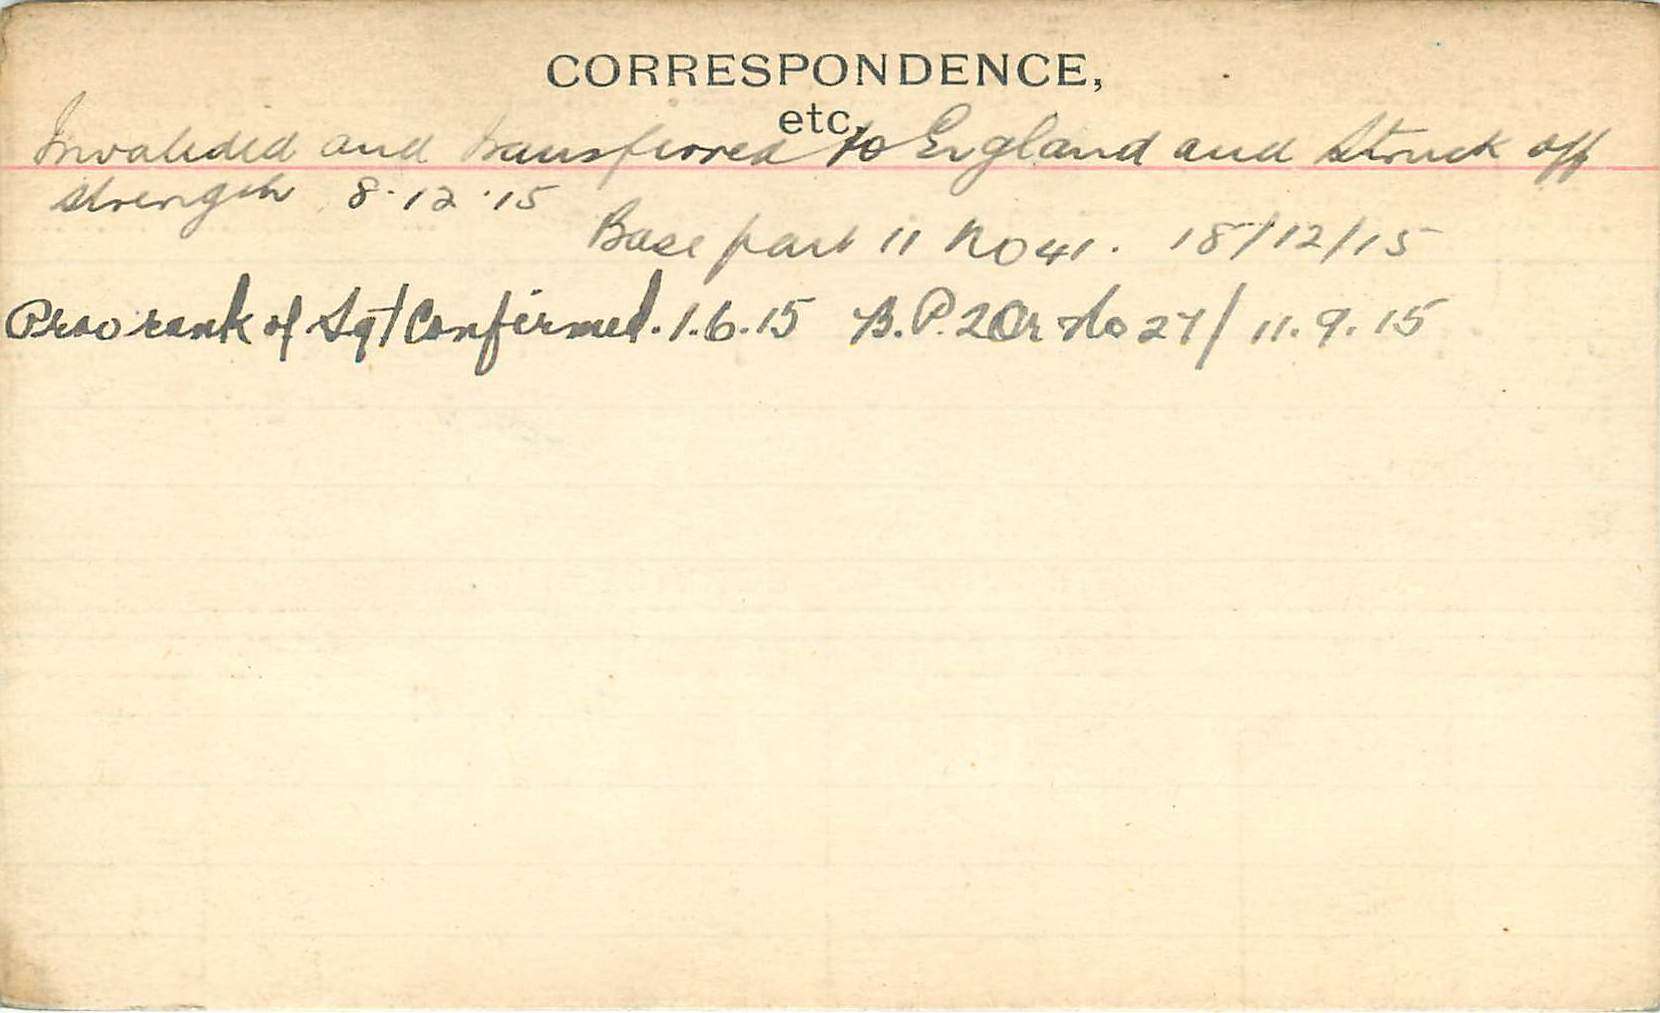 CORRESPONDENCE,
etc.
Invalided and transferred to England and Struck off
strength 8.12.15
Base part 11 No 41. 18/12/15
Prov rank of Sgt Confirmed. 1.6.15 B.P. 2 Or No 27/ 11.9.15